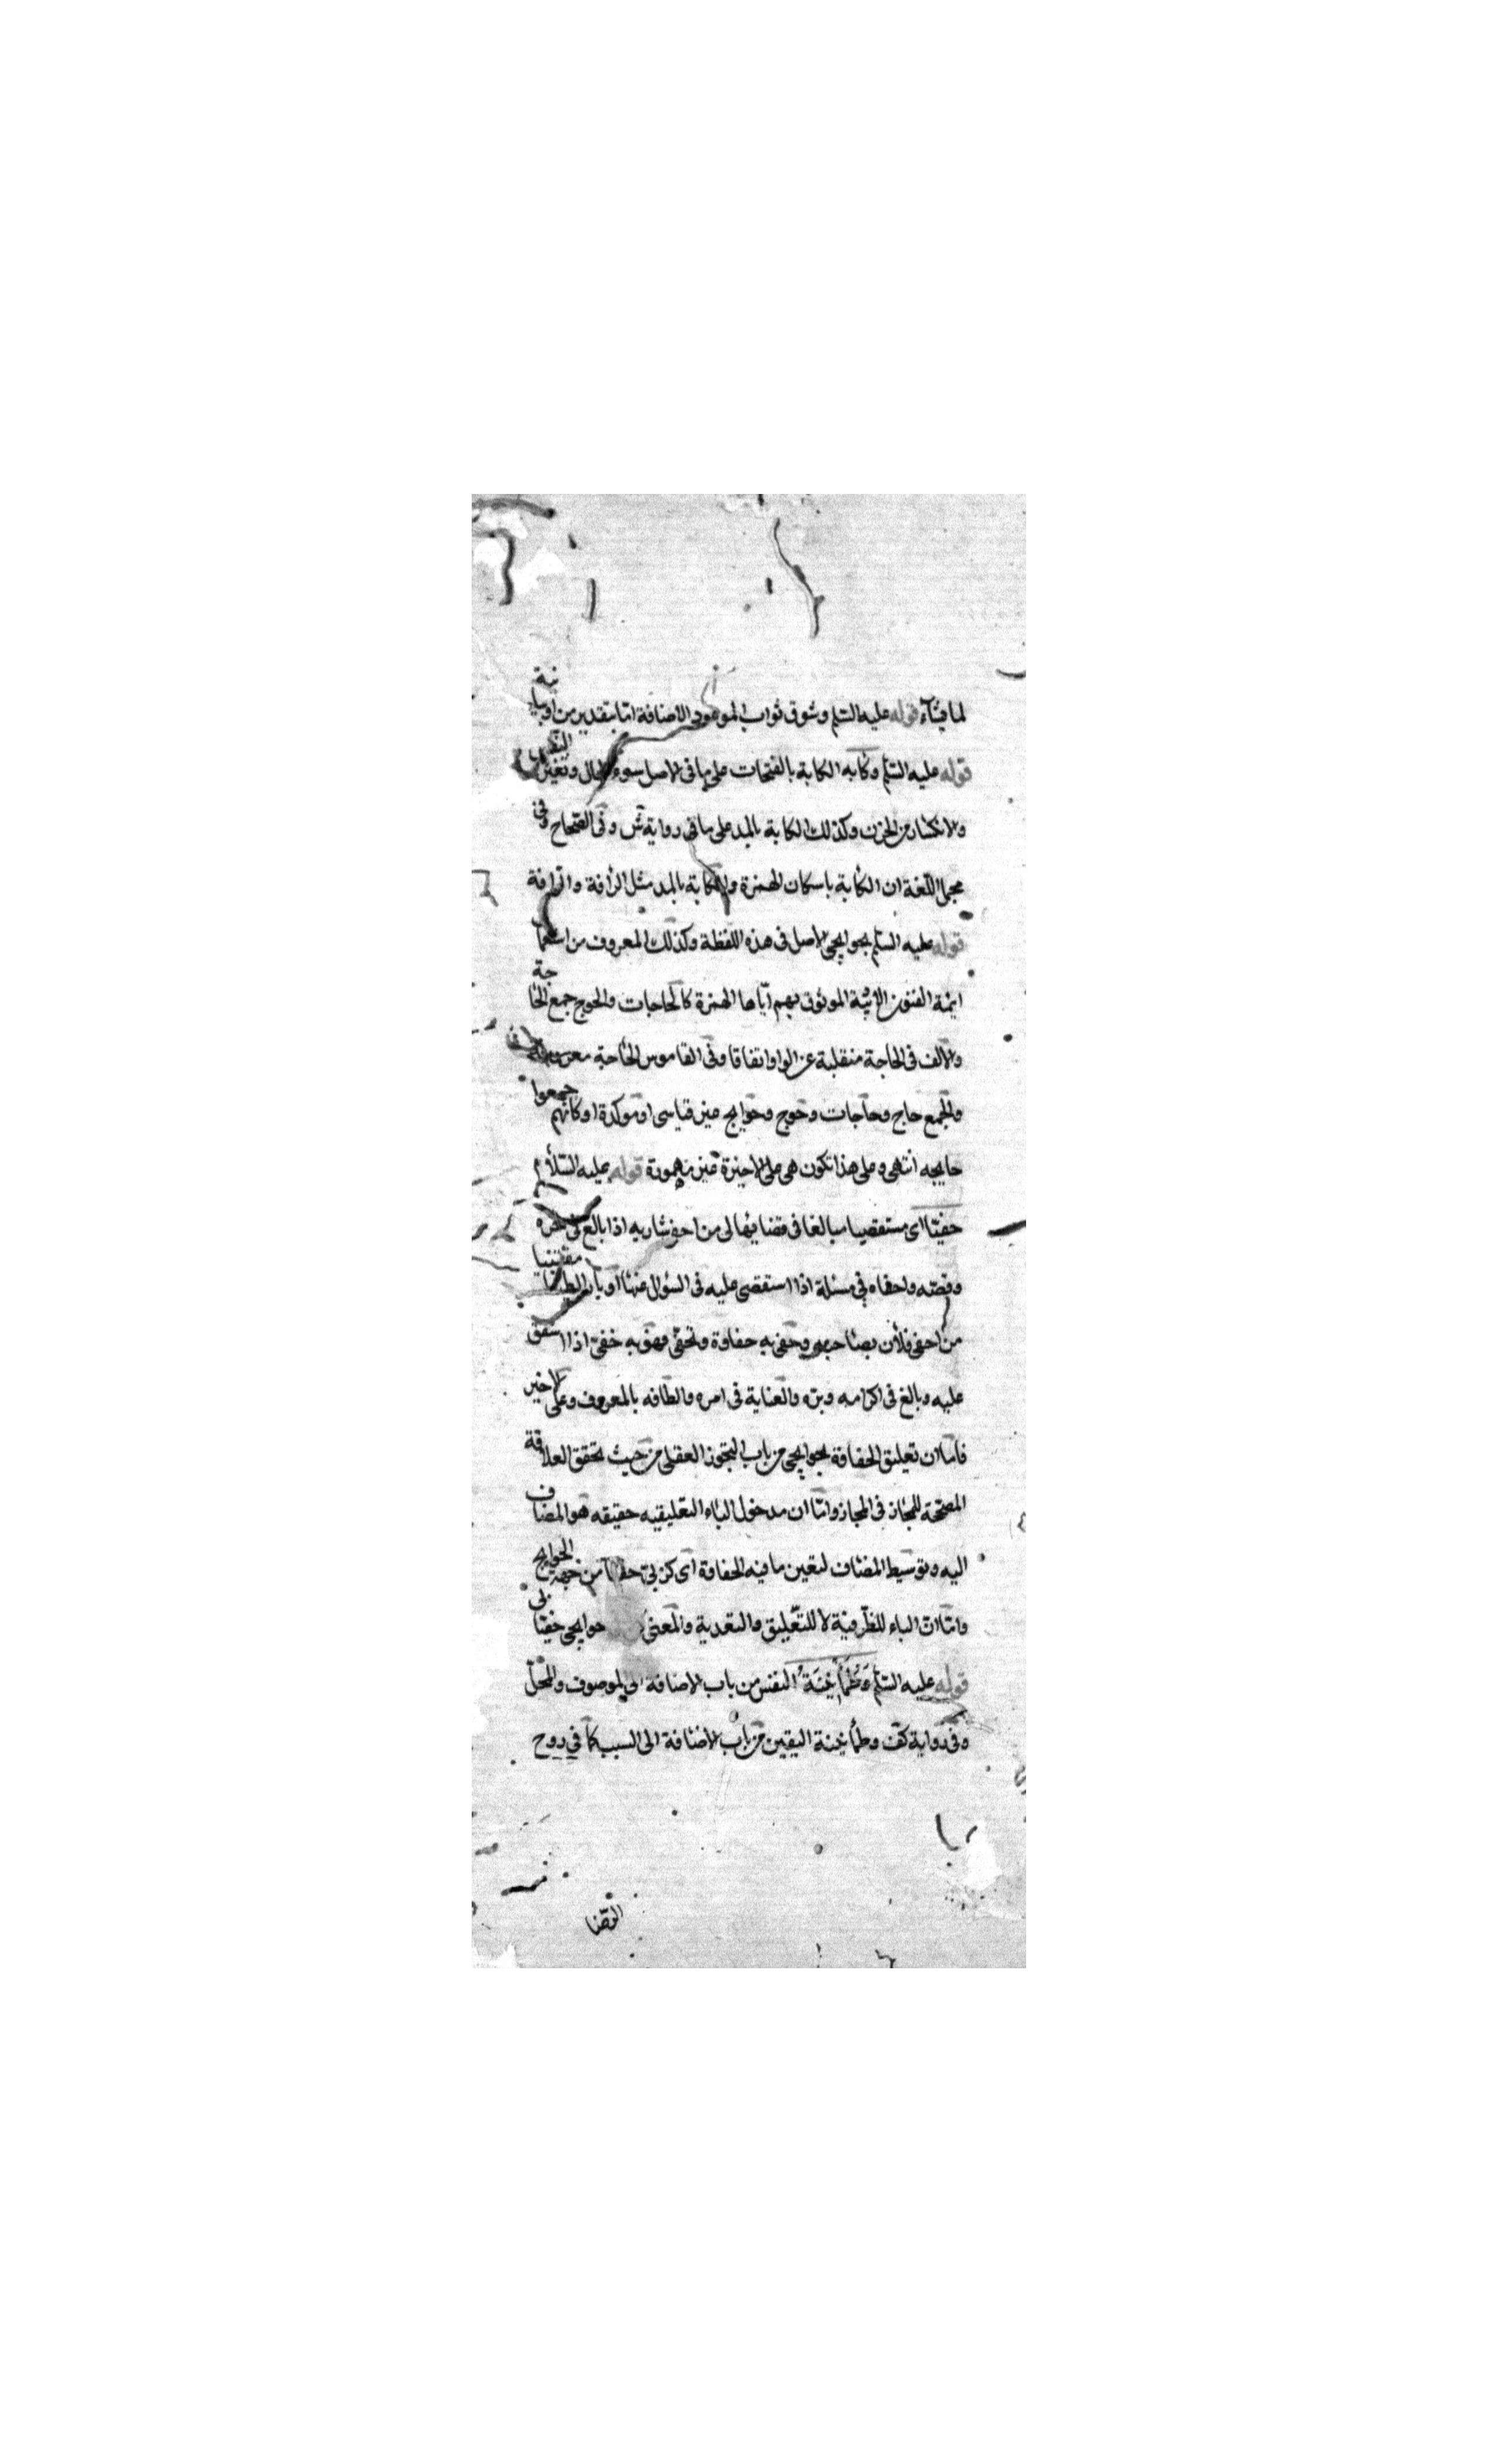 لما يشاء قوله عليه السلم وشوق ثواب الموعود الاضافة اما بتقدير من او بيانية
قوله عليه السلم وكابه الكابة بالفتحات على ما فى الاصل سوء الحال وتغير النفس
والانكسار من الحزن وكذلك الكابة بالمد على ما فى رواية ش وفى الصحاح وفى
مجمل اللغة ان الكأبة باسكان الهمزة والكابة بالمد مثل الرأفة والرافة
قوله عليه السلم بحوايجى الاصل فى هذه اللفظة وكذلك المعروف من
ايمة الفنون الموثوق بهم اياها الهمزة كالحاجات والحوج جمع الحاجة
والالف فى الحاجة منقلبة عن الواو اتفاقا وفى القاموس الحاجة معروفة
والجمع حاج وحاجات وحوج وحوايج غير قياسى او مولدة او كانهم جمعوا
حايجه انتهى وعلى هذا تكون هى على الاخيرة غير مهموزة قوله عليه السلام
حفيا اى مستقصيا مبالغا فى قضائها لى من احفى شاربه اذا بالغ فى جزه
وقصه واحفاه فى مسئلة اذا استقصى عليه فى السؤال عنها او بارا لطيفا مقتنيا
من احفى فلان بصاحبه وحفى به حفاوة وتحفى فهو به حفى اذا اشفق
عليه وبالغ فى اكرامه وبره والعناية فى امره والطافه بالمعروف وعلى الاخير
فاما ان تعليق الحفاوة بحوايجى من باب التجوز العقلى من حيث تحقق العلاقة
المصححة للمجاز فى المجاز واما ان مدخول الباء التعليقيه حقيقه هو المضاف
اليه وتوسيط المضاف لتعين ما فيه الحفاوة اى كن بى حفيا من جهة الحوايج
واما ان الباء للظرفية لا للتعليق والتعدية والمعنى حوايجى حفيا بى
قوله عليه السلم وطمأنينة النفس من باب الاضافة الى الموصوف والمحل
وفى رواية كف وطمأنينة اليقين من باب الاضافة الى السبب كما فى روح
الرضا